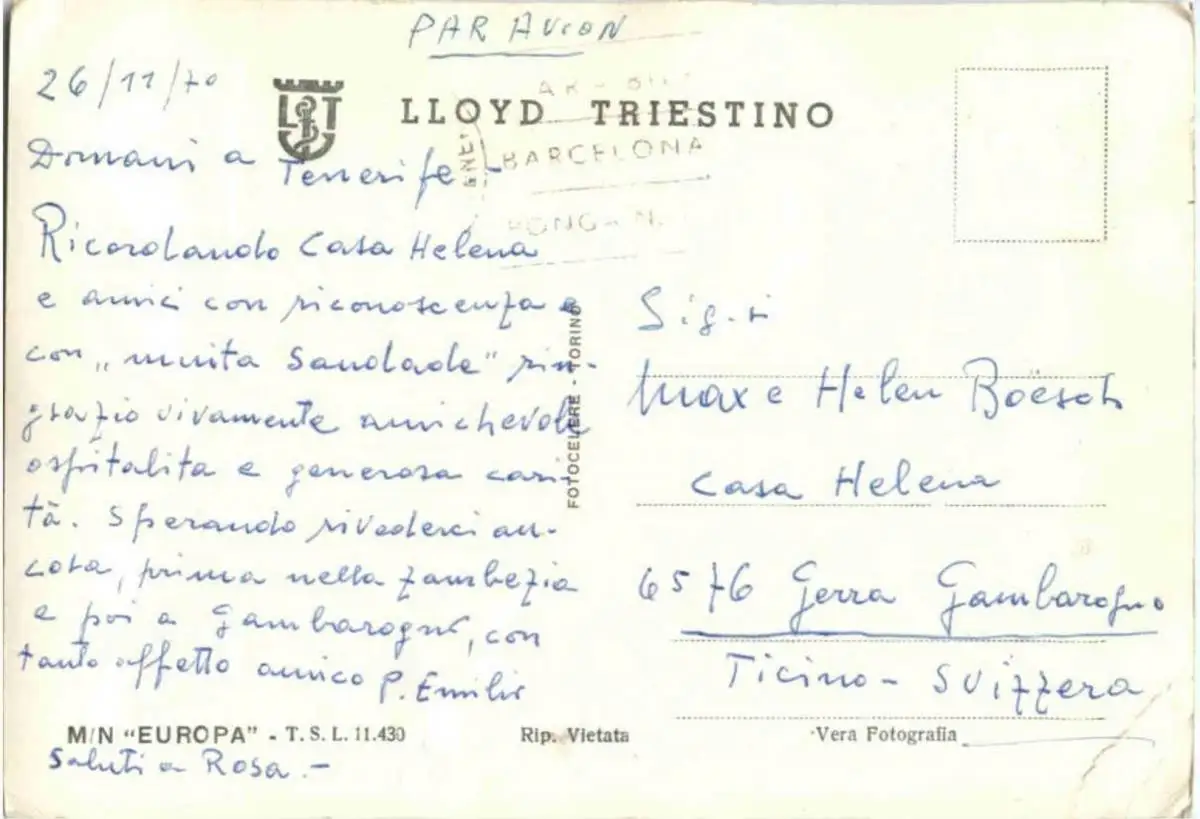 PAR AVION
26/11/70
LLOYD TRIESTINO
BARCELONA
Domani a Tenerife -
Ricordando Casa Helena
e amici con riconoscenza e
con „muita Saudade" rin-
grazio vivamente amichevole
ospitalita e generosa cari-
tà. Sperando rivederci an-
cora, prima nella Zambezia
e poi a Gambarogno, con
tanto affetto amico P. Emilio
M/N "EUROPA" - T. S. L. 11.430
Saluti a Rosa. -
FOTOCELERE - TORINO
Sig.ri
Max e Helen Boësch
Casa Helena
6576 Gerra Gambarogno
Ticino - Svizzera
Rip. Vietata
Vera Fotografia